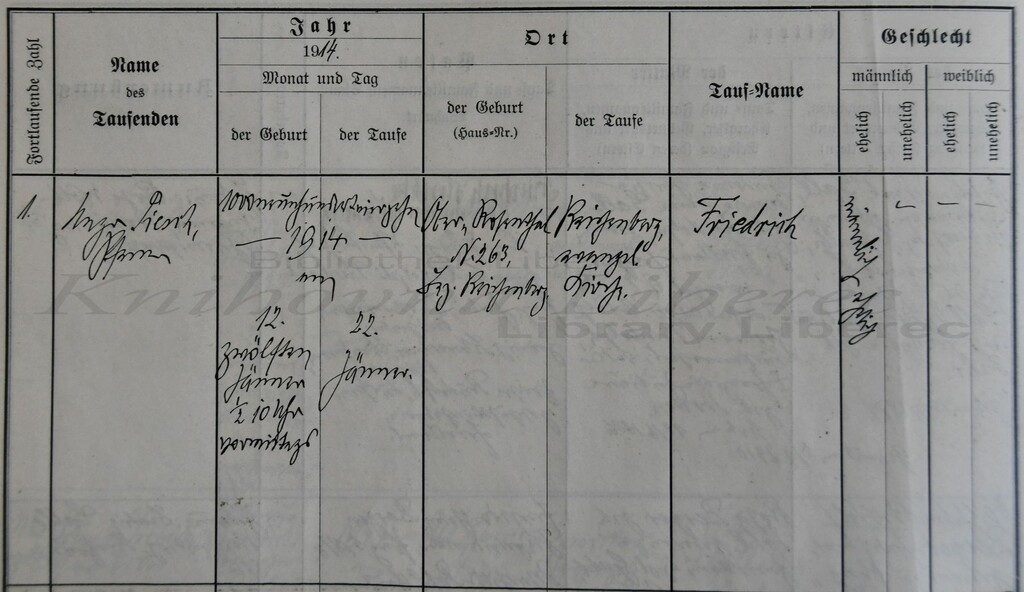 Fortlaufende Zahl
Name
des
Taufenden
Jahr
1914.
Monat und Tag
der Geburt
der Taufe
Ort
der Geburt
(Haus=Nr.)
der Taufe
Tauf=Name
Geschlecht
männlich
weiblich
ehelich
unehelich
ehelich
unehelich
1.
Piesch,
— 1914 —
am
12.
zwölften
Jänner
½ 10 Uhr
vormittags
22.
Jänner.
Ober-Rosenthal
N. 263,
Bez. Reichenberg
Reichenberg,
evangel
Kirche.
Friedrich
männlich
ehelich
— — —
Bibliothek Liberec
Knihovna Liberec
Library Liberec